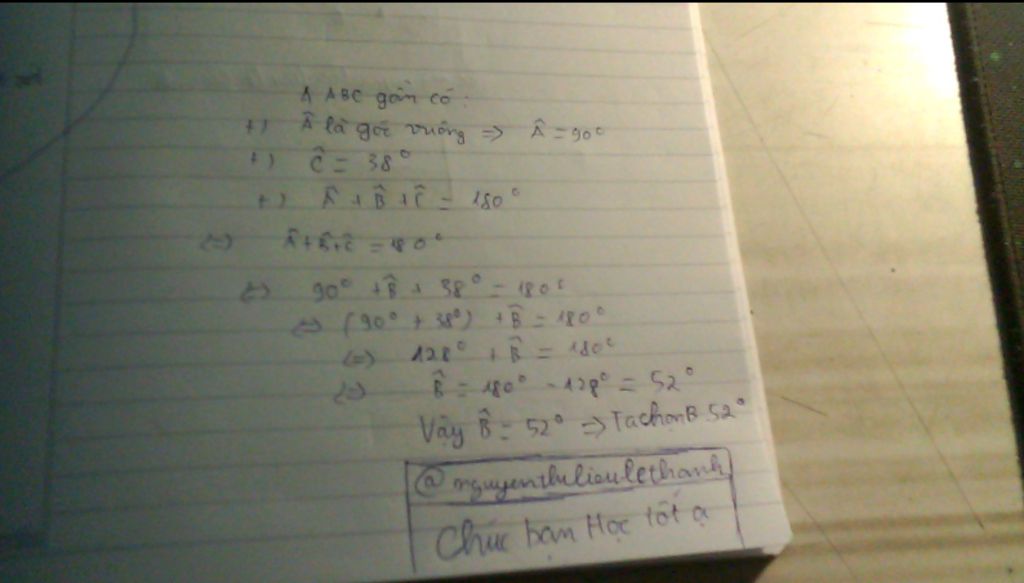 Δ ABC gồm có:
+) Â là góc vuông => Â = 90°
+) Ĉ = 38°
+) Â + B̂ + Ĉ = 180°
<=> Â + B̂ + Ĉ = 180°
<=> 90° + B̂ + 38° = 180°
<=> (90° + 38°) + B̂ = 180°
<=> 128° + B̂ = 180°
<=> B̂ = 180° - 128° = 52°
Vậy B̂ = 52° => Ta chọn B. 52°
@nguyenthulieulethanh
Chúc bạn Học tốt ạ